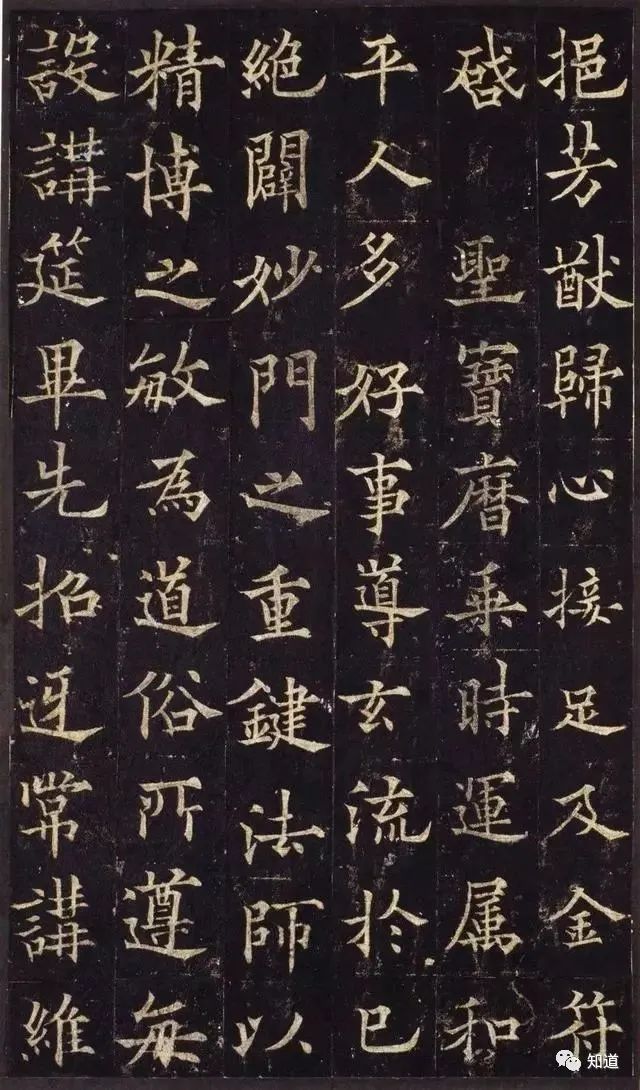 挹芳猷歸心接足及金符
啓聖寶曆乘時運属和
平人多好事導玄流於已
絶闢妙門之重鍵法師以
精博之敏為道俗所遵每
設講筵畢先招迓常講維
知道